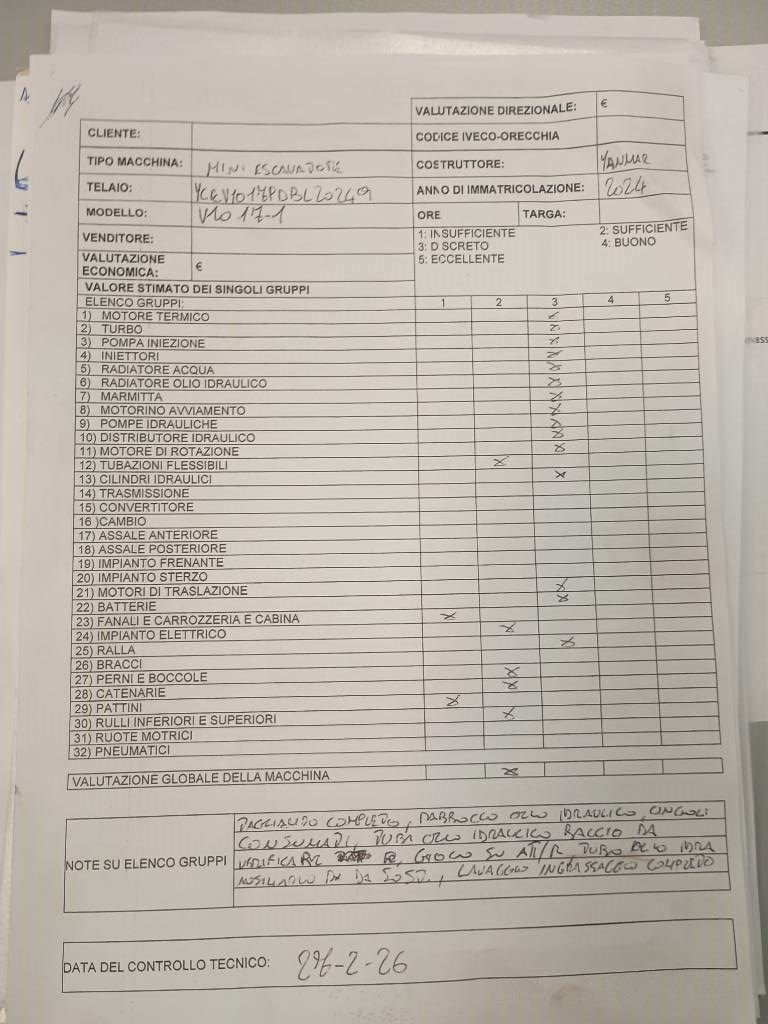 VALUTAZIONE DIREZIONALE: €
CLIENTE:
CODICE IVECO-ORECCHIA
TIPO MACCHINA: MINI ESCAVATORE
COSTRUTTORE: YANMAR
TELAIO:
ANNO DI IMMATRICOLAZIONE: 2024
MODELLO: VIO 17-1
ORE TARGA:
VENDITORE:
1: INSUFFICIENTE 2: SUFFICIENTE
3: DISCRETO 4: BUONO
5: ECCELLENTE
VALUTAZIONE
ECONOMICA: €
VALORE STIMATO DEI SINGOLI GRUPPI
ELENCO GRUPPI: 1 2 3 4 5
1) MOTORE TERMICO X
2) TURBO X
3) POMPA INIEZIONE X
4) INIETTORI X
5) RADIATORE ACQUA X
6) RADIATORE OLIO IDRAULICO X
7) MARMITTA X
8) MOTORINO AVVIAMENTO X
9) POMPE IDRAULICHE X
10) DISTRIBUTORE IDRAULICO X
11) MOTORE DI ROTAZIONE X
12) TUBAZIONI FLESSIBILI X
13) CILINDRI IDRAULICI X
14) TRASMISSIONE
15) CONVERTITORE
16 )CAMBIO
17) ASSALE ANTERIORE
18) ASSALE POSTERIORE
19) IMPIANTO FRENANTE
20) IMPIANTO STERZO
21) MOTORI DI TRASLAZIONE X
22) BATTERIE X
23) FANALI E CARROZZERIA E CABINA X
24) IMPIANTO ELETTRICO X
25) RALLA X
26) BRACCI
27) PERNI E BOCCOLE X
28) CATENARIE X
29) PATTINI X
30) RULLI INFERIORI E SUPERIORI X
31) RUOTE MOTRICI
32) PNEUMATICI
VALUTAZIONE GLOBALE DELLA MACCHINA X
NOTE SU ELENCO GRUPPI
TAGLIANDO COMPLETO, OLIO IDRAULICO, CINGOLI
CONSUMATI, TUBI OLIO IDRAULICO BRACCIO DA
VERIFICARE GIOCO SU TUBO OLIO
DA SOST., LAVAGGIO INGRASSAGGIO COMPLETO
DATA DEL CONTROLLO TECNICO: -2-26